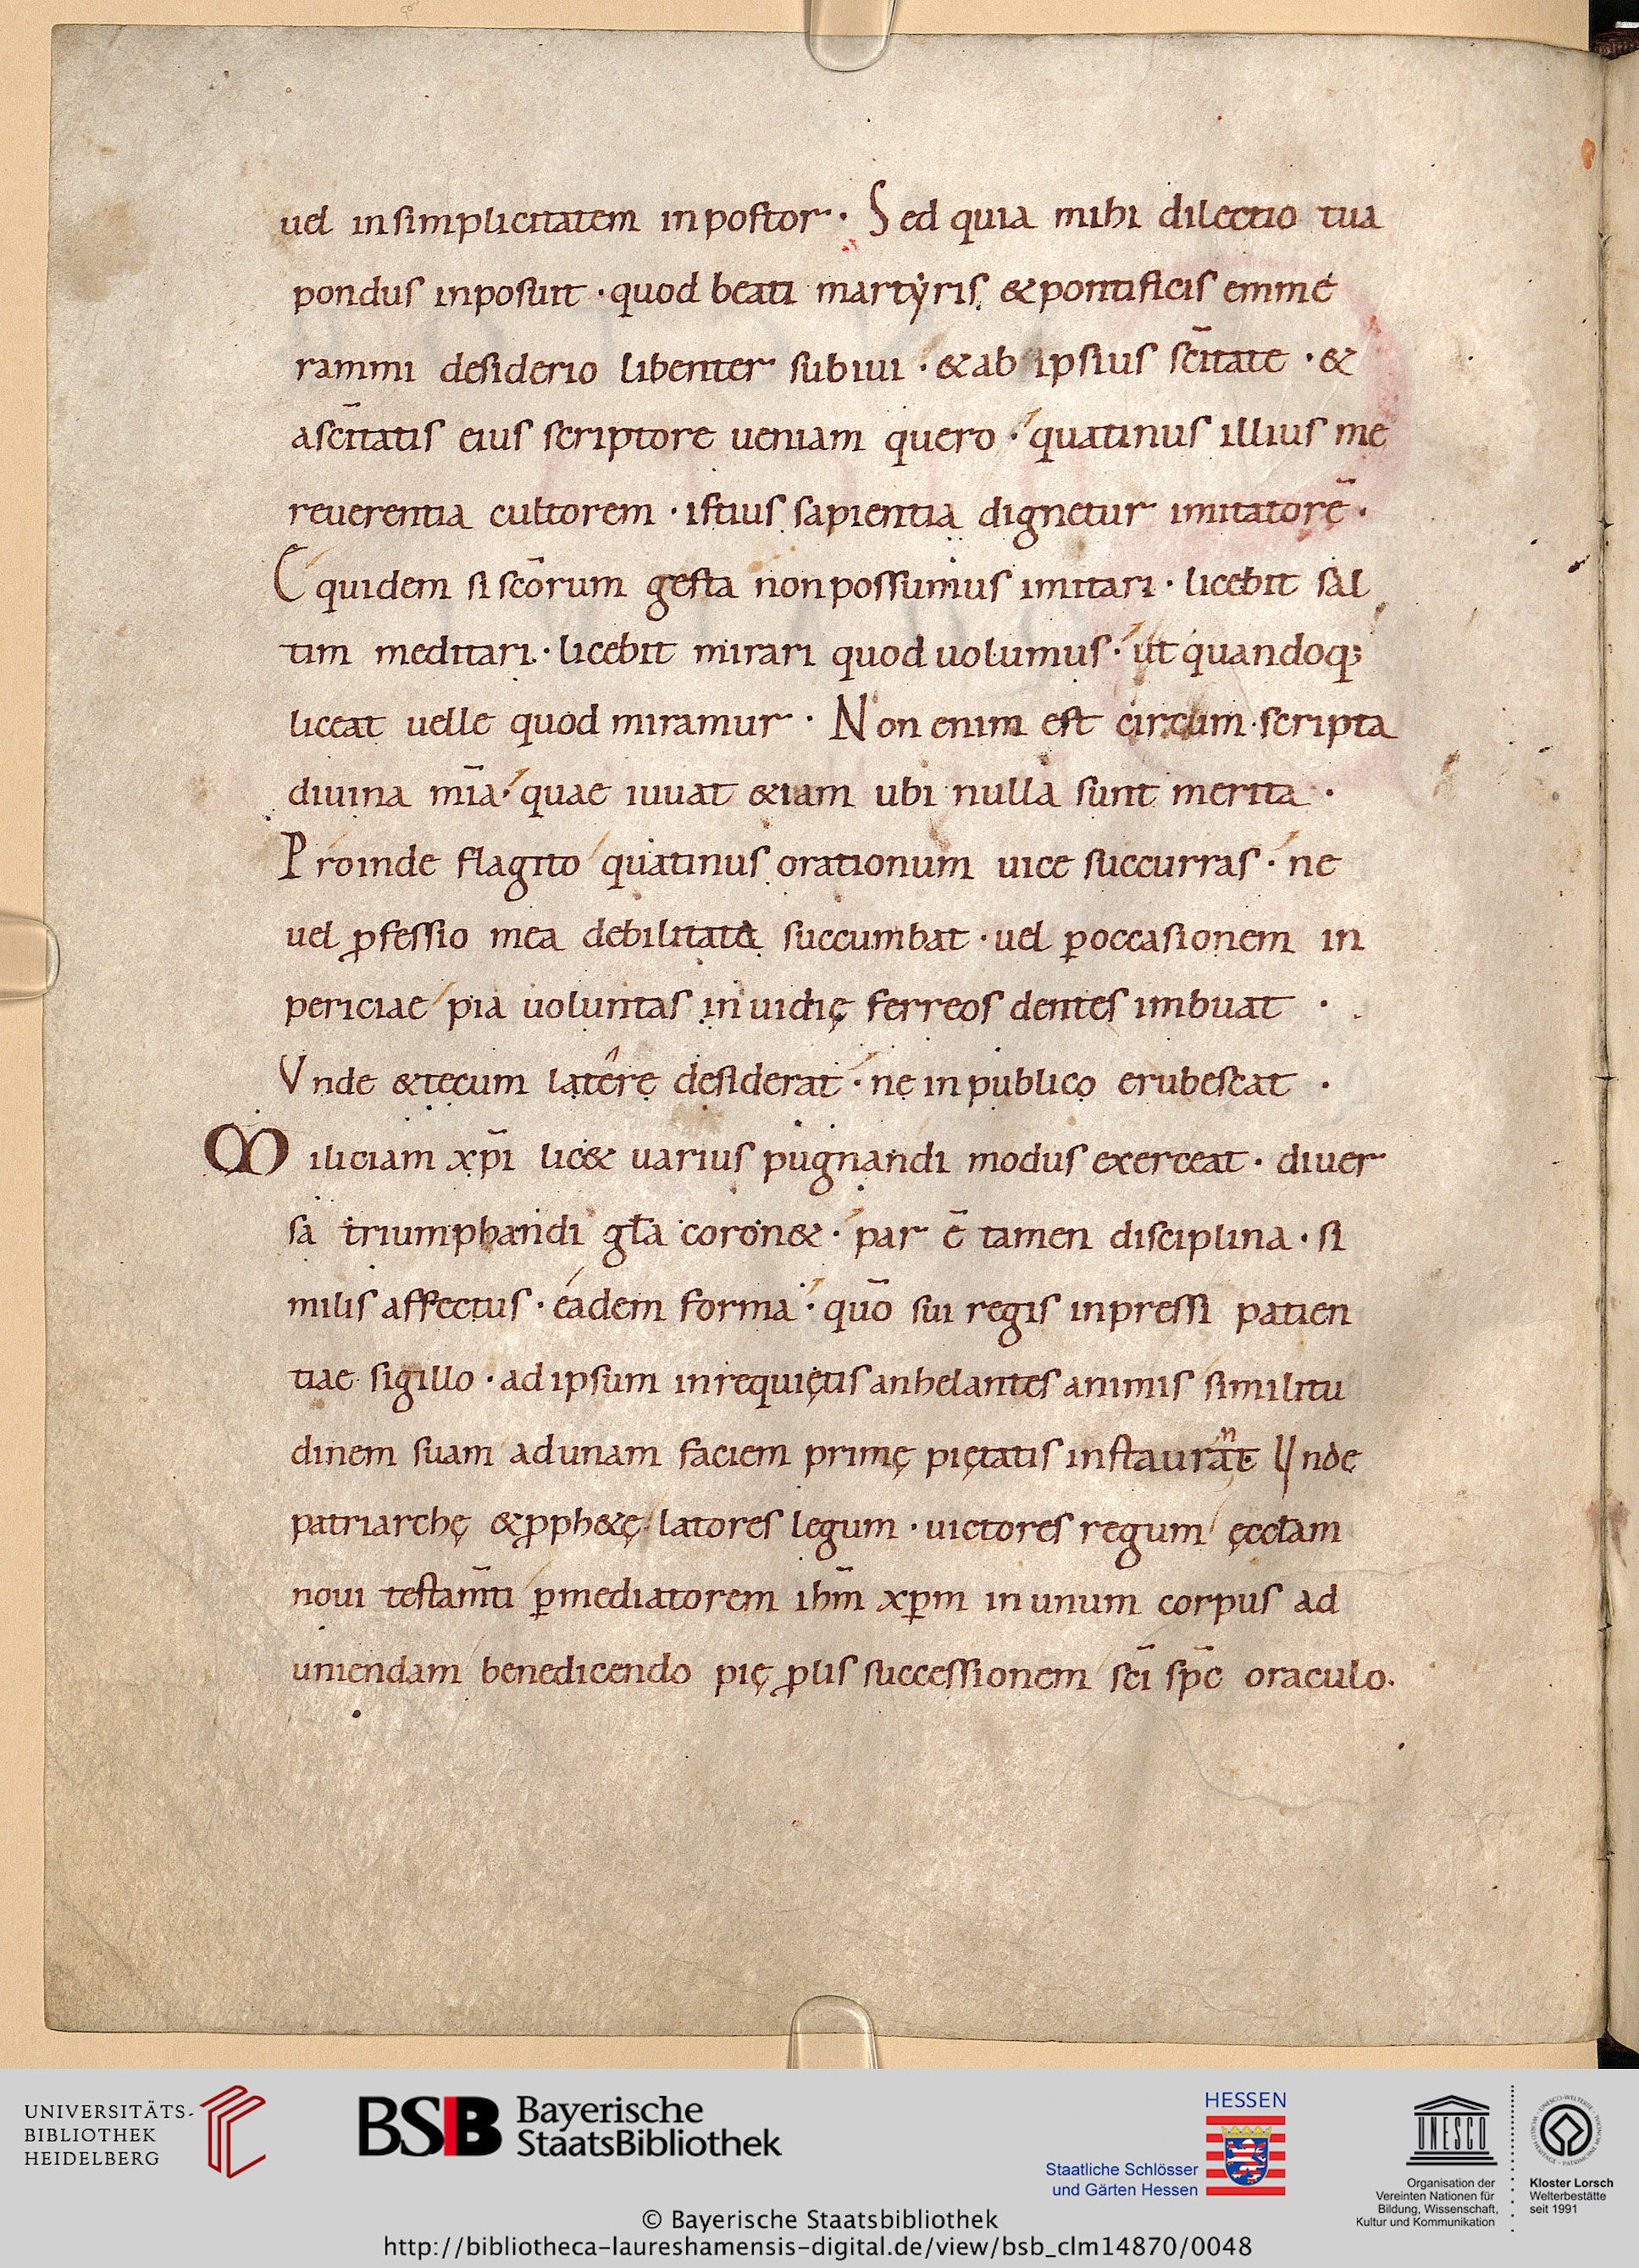 uel insimplicitatem inpostor· Sed quia mihi dilectio tua
pondus inposuit ·quod beati martẏris &pontificis emme
rammi desiderio libenter subiui ·&ab ipsius scı̄tate ·&
ascı̄tatis eius scriptore ueniam quero · quatinus illius me
reuerentia cultorem ·istius sapientia dignetur imitatorē·
Equidem si scōrum gesta nonpossumus imitari· licebit sal
tim meditari· licebit mirari quod uolumus· ut quandoq;
liceat uelle quod miramur · Non enim est circum scripta
diuina mı̄a· quae iuuat &iam ubi nulla sunt merita ·
Proinde flagito quatinus orationum uice succurras· ne
uel ꝓfessio mea debilitate succumbat ·uel ꝑoccasionem in
periciae pia uoluntas inuidię ferreos dentes imbuat ·
Vnde &tecum latere desiderat· ne inpublico erubescat ·
Miliciam xp̄i lic& uarius pugnandi modus exerceat· diuer
sa triumphandi gła coron&· par ē tamen disciplina· si
milis affectus· eadem forma· quō sui regis inpressi patien
tiae sigillo ·adipsum inrequiętis anhelantes animis similitu
dinem suam adunam faciem primę pięt​atis instaurant Vnde
patriarchę &ꝓph&ę latores legum ·uictores regum ęccłam
noui testam̄ti ꝑmediatorem ihm̄ xp̄m inunum corpus ad
uniendam benedicendo pię ꝓlis successionem scı̄ sp̄c oraculo.
UNIVERSITÄTS-
BIBLIOTHEK
HEIDELBERG
BSB Bayerische
StaatsBibliothek
HESSEN
Staatliche Schlösser
und Gärten Hessen
UNESCO
Organisation der
Vereinten Nationen für
Bildung, Wissenschaft,
Kultur und Kommunikation
Kloster Lorsch
Welterbestätte
seit 1991
© Bayerische Staatsbibliothek
http://bibliotheca-laureshamensis-digital.de/view/bsb_clm14870/0048